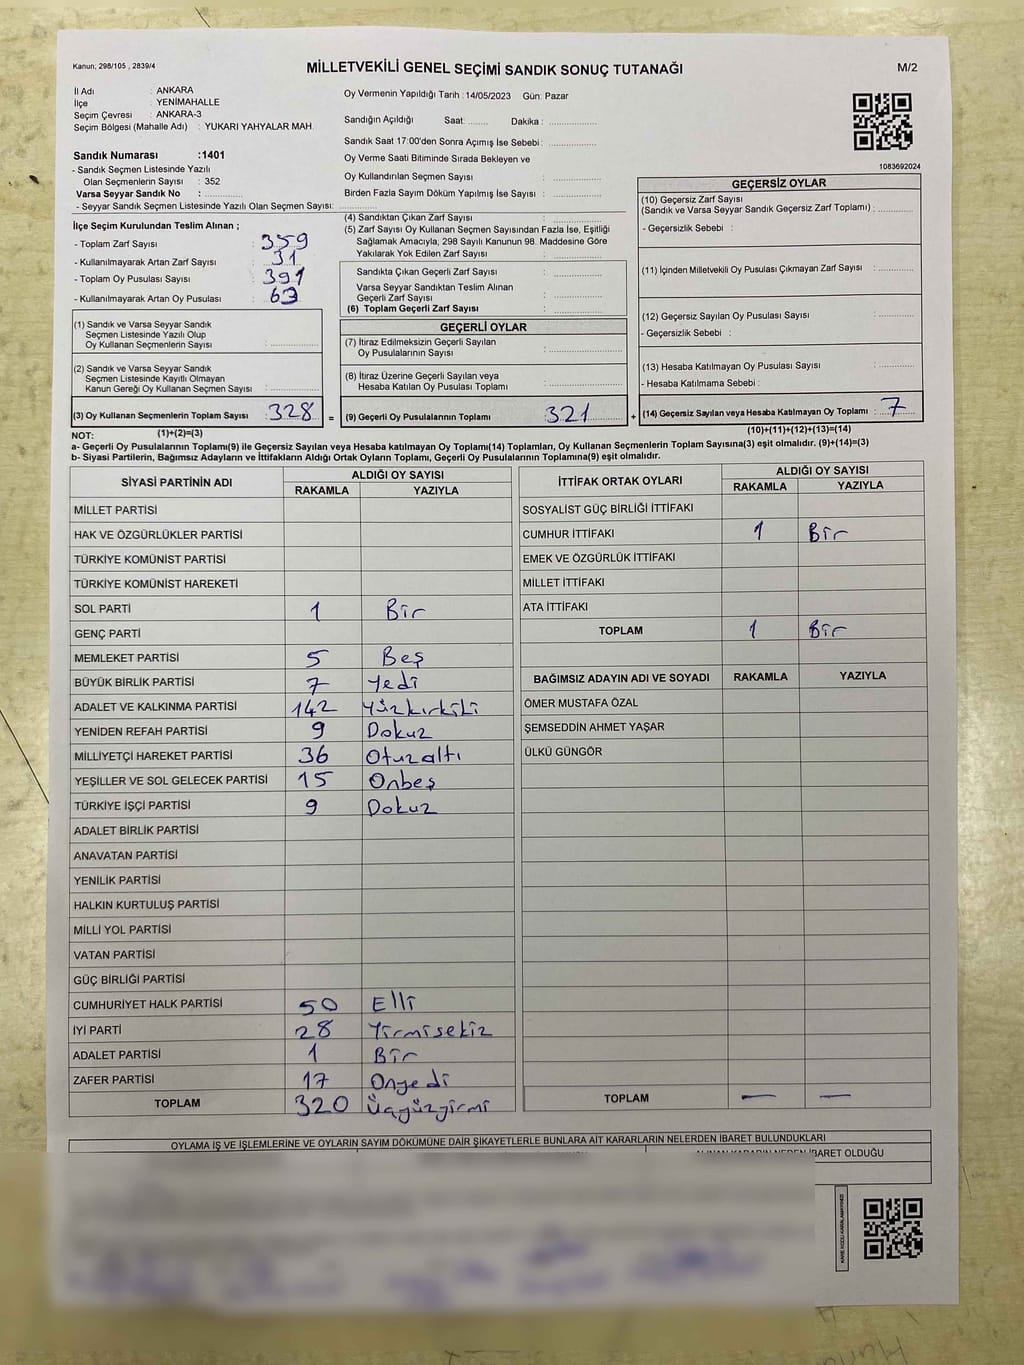 Kanun; 298/105 , 2839/4
MİLLETVEKİLİ GENEL SEÇİMİ SANDIK SONUÇ TUTANAĞI
M/2
İl Adı : ANKARA
İlçe : YENİMAHALLE
Seçim Çevresi : ANKARA-3
Seçim Bölgesi (Mahalle Adı) : YUKARI YAHYALAR MAH.
Sandık Numarası :1401
- Sandık Seçmen Listesinde Yazılı
Olan Seçmenlerin Sayısı : 352
Varsa Seyyar Sandık No : ............
- Seyyar Sandık Seçmen Listesinde Yazılı Olan Seçmen Sayısı: ............
İlçe Seçim Kurulundan Teslim Alınan ;
- Toplam Zarf Sayısı : 359
- Kullanılmayarak Artan Zarf Sayısı : 31
- Toplam Oy Pusulası Sayısı : 391
- Kullanılmayarak Artan Oy Pusulası : 63
(1) Sandık ve Varsa Seyyar Sandık
Seçmen Listesinde Yazılı Olup
Oy Kullanan Seçmenlerin Sayısı : ............
(2) Sandık ve Varsa Seyyar Sandık
Seçmen Listesinde Kayıtlı Olmayan
Kanun Gereği Oy Kullanan Seçmen Sayısı : ............
(3) Oy Kullanan Seçmenlerin Toplam Sayısı : 328 =
Oy Vermenin Yapıldığı Tarih : 14/05/2023 Gün: Pazar
Sandığın Açıldığı Saat: ........ Dakika : ............
Sandık Saat 17:00'den Sonra Açımış İse Sebebi: ............
Oy Verme Saati Bitiminde Sırada Bekleyen ve
Oy Kullandırılan Seçmen Sayısı : ............
Birden Fazla Sayım Döküm Yapılmış İse Sayısı : ............
(4) Sandıktan Çıkan Zarf Sayısı : ............
(5) Zarf Sayısı Oy Kullanan Seçmen Sayısından Fazla İse, Eşitliği
Sağlamak Amacıyla, 298 Sayılı Kanunun 98. Maddesine Göre
Yakılarak Yok Edilen Zarf Sayısı : ............
Sandıkta Çıkan Geçerli Zarf Sayısı : ............
Varsa Seyyar Sandıktan Teslim Alınan
Geçerli Zarf Sayısı : ............
(6) Toplam Geçerli Zarf Sayısı : ............
GEÇERLİ OYLAR
(7) İtiraz Edilmeksizin Geçerli Sayılan
Oy Pusulalarının Sayısı : ............
(8) İtiraz Üzerine Geçerli Sayılan veya
Hesaba Katılan Oy Pusulası Toplamı : ............
(9) Geçerli Oy Pusulalarının Toplamı : 321 +
1083692024
GEÇERSİZ OYLAR
(10) Geçersiz Zarf Sayısı
(Sandık ve Varsa Seyyar Sandık Geçersiz Zarf Toplamı) : ............
- Geçersizlik Sebebi :
(11) İçinden Milletvekili Oy Pusulası Çıkmayan Zarf Sayısı : ............
(12) Geçersiz Sayılan Oy Pusulası Sayısı : ............
- Geçersizlik Sebebi :
(13) Hesaba Katılmayan Oy Pusulası Sayısı : ............
- Hesaba Katılmama Sebebi :
(14) Geçersiz Sayılan veya Hesaba Katılmayan Oy Toplamı : 7
NOT: (1)+(2)=(3) (10)+(11)+(12)+(13)=(14)
a- Geçerli Oy Pusulalarının Toplamı(9) ile Geçersiz Sayılan veya Hesaba katılmayan Oy Toplamı(14) Toplamları, Oy Kullanan Seçmenlerin Toplam Sayısına(3) eşit olmalıdır. (9)+(14)=(3)
b- Siyasi Partilerin, Bağımsız Adayların ve İttifakların Aldığı Ortak Oyların Toplamı, Geçerli Oy Pusulalarının Toplamına(9) eşit olmalıdır.
SİYASİ PARTİNİN ADI ALDIĞI OY SAYISI
RAKAMLA YAZIYLA
MİLLET PARTİSİ
HAK VE ÖZGÜRLÜKLER PARTİSİ
TÜRKİYE KOMÜNİST PARTİSİ
TÜRKİYE KOMÜNİST HAREKETİ
SOL PARTİ 1 Bir
GENÇ PARTİ
MEMLEKET PARTİSİ 5 Beş
BÜYÜK BİRLİK PARTİSİ 7 Yedi
ADALET VE KALKINMA PARTİSİ 142 Yüzkırkiki
YENİDEN REFAH PARTİSİ 9 Dokuz
MİLLİYETÇİ HAREKET PARTİSİ 36 Otuzaltı
YEŞİLLER VE SOL GELECEK PARTİSİ 15 Onbeş
TÜRKİYE İŞÇİ PARTİSİ 9 Dokuz
ADALET BİRLİK PARTİSİ
ANAVATAN PARTİSİ
YENİLİK PARTİSİ
HALKIN KURTULUŞ PARTİSİ
MİLLİ YOL PARTİSİ
VATAN PARTİSİ
GÜÇ BİRLİĞİ PARTİSİ
CUMHURİYET HALK PARTİSİ 50 Elli
İYİ PARTİ 28 Yirmisekiz
ADALET PARTİSİ 1 Bir
ZAFER PARTİSİ 17 Onyedi
TOPLAM 320 Üçyüzyirmi
İTTİFAK ORTAK OYLARI ALDIĞI OY SAYISI
RAKAMLA YAZIYLA
SOSYALİST GÜÇ BİRLİĞİ İTTİFAKI
CUMHUR İTTİFAKI 1 Bir
EMEK VE ÖZGÜRLÜK İTTİFAKI
MİLLET İTTİFAKI
ATA İTTİFAKI
TOPLAM 1 Bir
BAĞIMSIZ ADAYIN ADI VE SOYADI RAKAMLA YAZIYLA
ÖMER MUSTAFA ÖZAL
ŞEMSEDDİN AHMET YAŞAR
ÜLKÜ GÜNGÖR
TOPLAM — —
OYLAMA İŞ VE İŞLEMLERİNE VE OYLARIN SAYIM DÖKÜMÜNE DAİR ŞİKAYETLERLE BUNLARA AİT KARARLARIN NELERDEN İBARET BULUNDUKLARI
ALINAN KARARIN NEDEN İBARET OLDUĞU